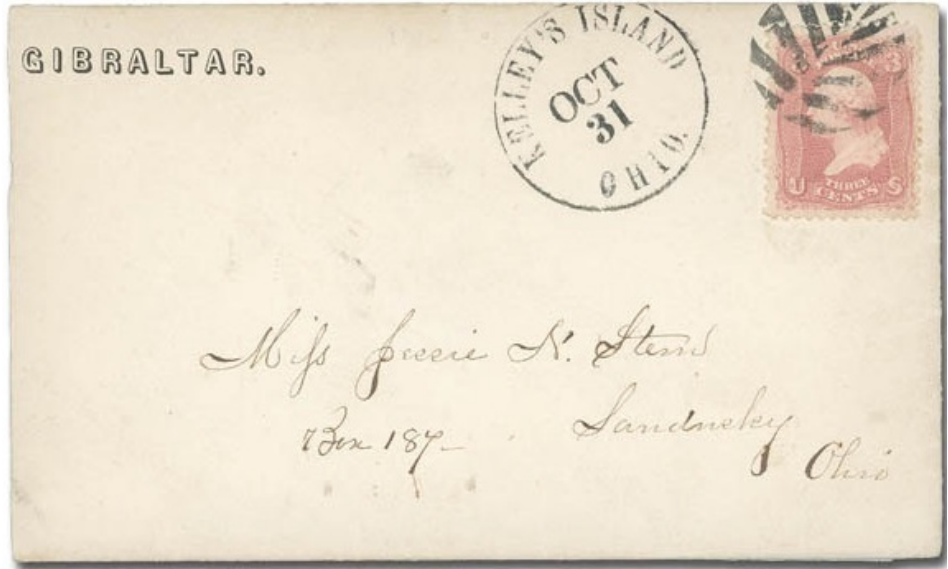 GIBRALTAR.
KELLEY'S ISLAND
OCT
31
OHIO.
3
U THREE S
CENTS
Miss Jessie N. Stem
Box 187 Sandusky
Ohio